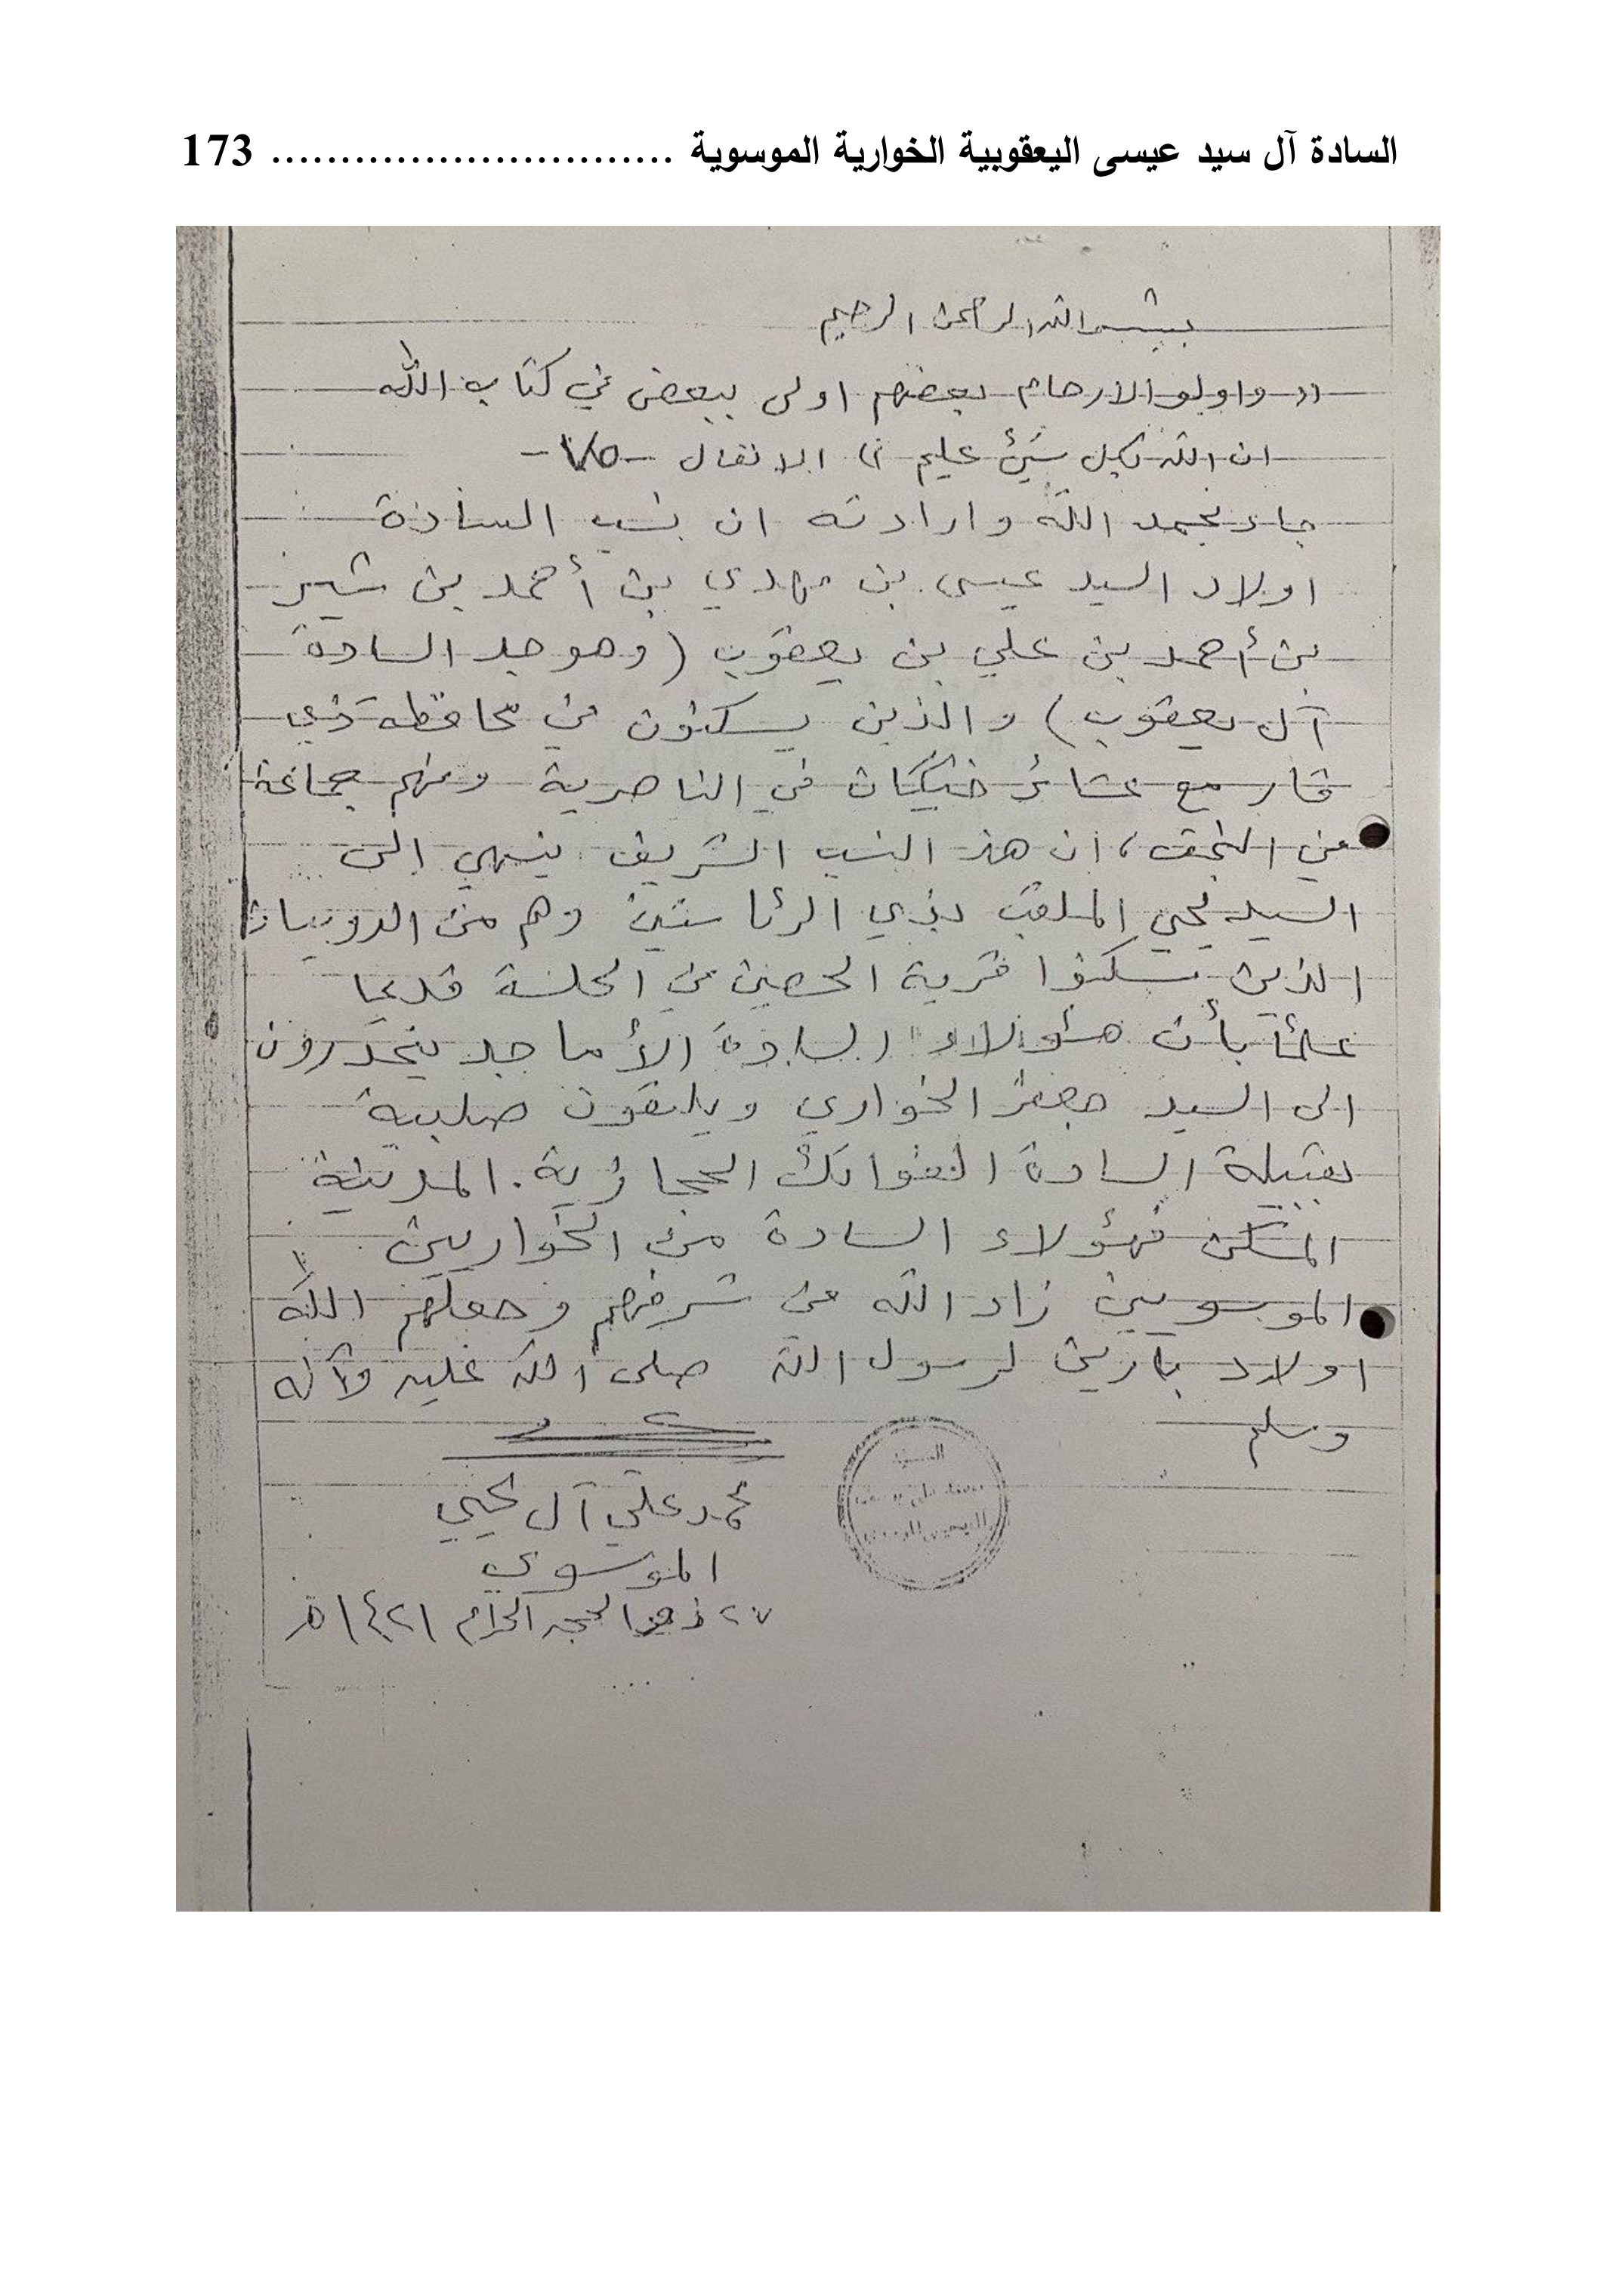 السادة آل سيد عيسى اليعقوبية الخوارية الموسوية ............................. 173
بسم الله الرحمن الرحيم
(( واولو الارحام بعضهم اولى ببعض في كتاب الله
ان الله بكل شيئ عليم )) الانفال - ٧٥ -
جاء بحمد الله وارادته ان نسب السادة
اولاد السيد عيسى بن مهدي بن أحمد بن شبر
بن أحمد بن علي بن يعقوب (وهو جد السادة
آل يعقوب) والذين يسكنون في محافظة ذي
قار مع عشائر خيكان في الناصرية ومنهم جماعة
في النجف، ان هذا النسب الشريف ينتهي الى
السيد يحيى الملقب بذي الرئاستين وهم من
الذين سكنوا قرية الحصين في الحلة قديما
علماً بأن هؤلاء السادة الأماجد ينحدرون
الى السيد جعفر الخواري ويلتقون صلبية
بقبيلة السادة الفواتك الحجازية. المدنية
المسكن فهؤلاء السادة من الخواريين
الموسويين زاد الله من شرفهم وجعلهم الله
اولاد بارين لرسول الله صلى الله عليه وآله
وسلم
السيد
محمد علي آل يحيى
الموسوي
٢٧ ذي الحجه الحرام ١٤٢١ هـ